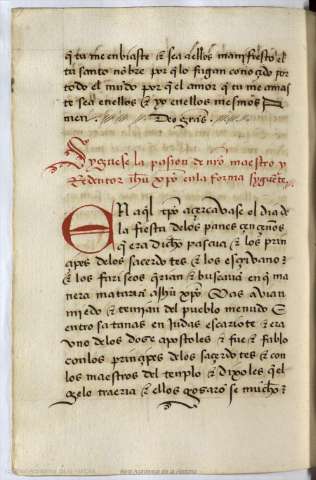 q̄ tu me enbiaste & sea a ellos manifiesto el
tu santo nōbre por q̄ lo fagan conosçido por
todo el mūdo por q̄ el amor q̄ tu me amas
te sea en ellos & yo en ellos mesmos A
men. Deo graçias.
Syguese la pasion de nr̄o maestro y
Redentor ih̄u xp̄o en la forma syguiēte
EN aq̄l tp̄o açercauase el dia de
la fiesta delos panes çençeños
q̄ era dicho pascua & los prin
çipes delos saçerdotes & los escriuanos
& los fariseos q̄rian & buscauā en q̄ ma
nera matarā a ih̄u xp̄o Mas auian
miedo & temian del pueblo menudo E
entro satanas en Iudas escariote & era
vno delos dose apostoles & fue & fablo
con los prinçipes delos saçerdotes & con
los maestros del templo & dixoles q̄ el
gelo traeria & ellos gosarō se mucho &
Real Academia de la Historia